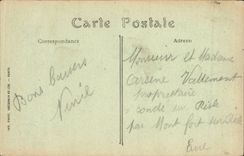 Carte Postale
Correspondance
Adresse
Bons baisers
Monsieur et Madame
Arsène Vallement
propriétaire
par Mont fort sur Risle
Eure